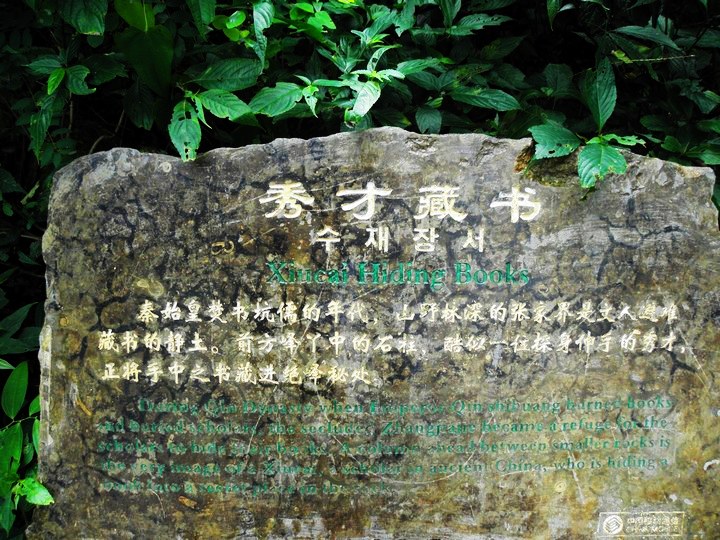 秀才藏书
수재잠서
Xiucai Hiding Books
秦始皇焚书坑儒的年代，山野林深的张家界是文人避难
藏书的静土。前方峰丫中的石柱，酷似一位探身伸手的秀才，
正将手中之书藏进绝峰秘处。
During Qin Denasty when Emperor Qin shihuang burned books
and buried scholars, the secluded Zhangjiajie became a refuge for the
scholars to hide books. A column stand between smaller rocks is
the very image of a Xiucai, a scholar in ancient China, who is hiding a
book into a secret place on the